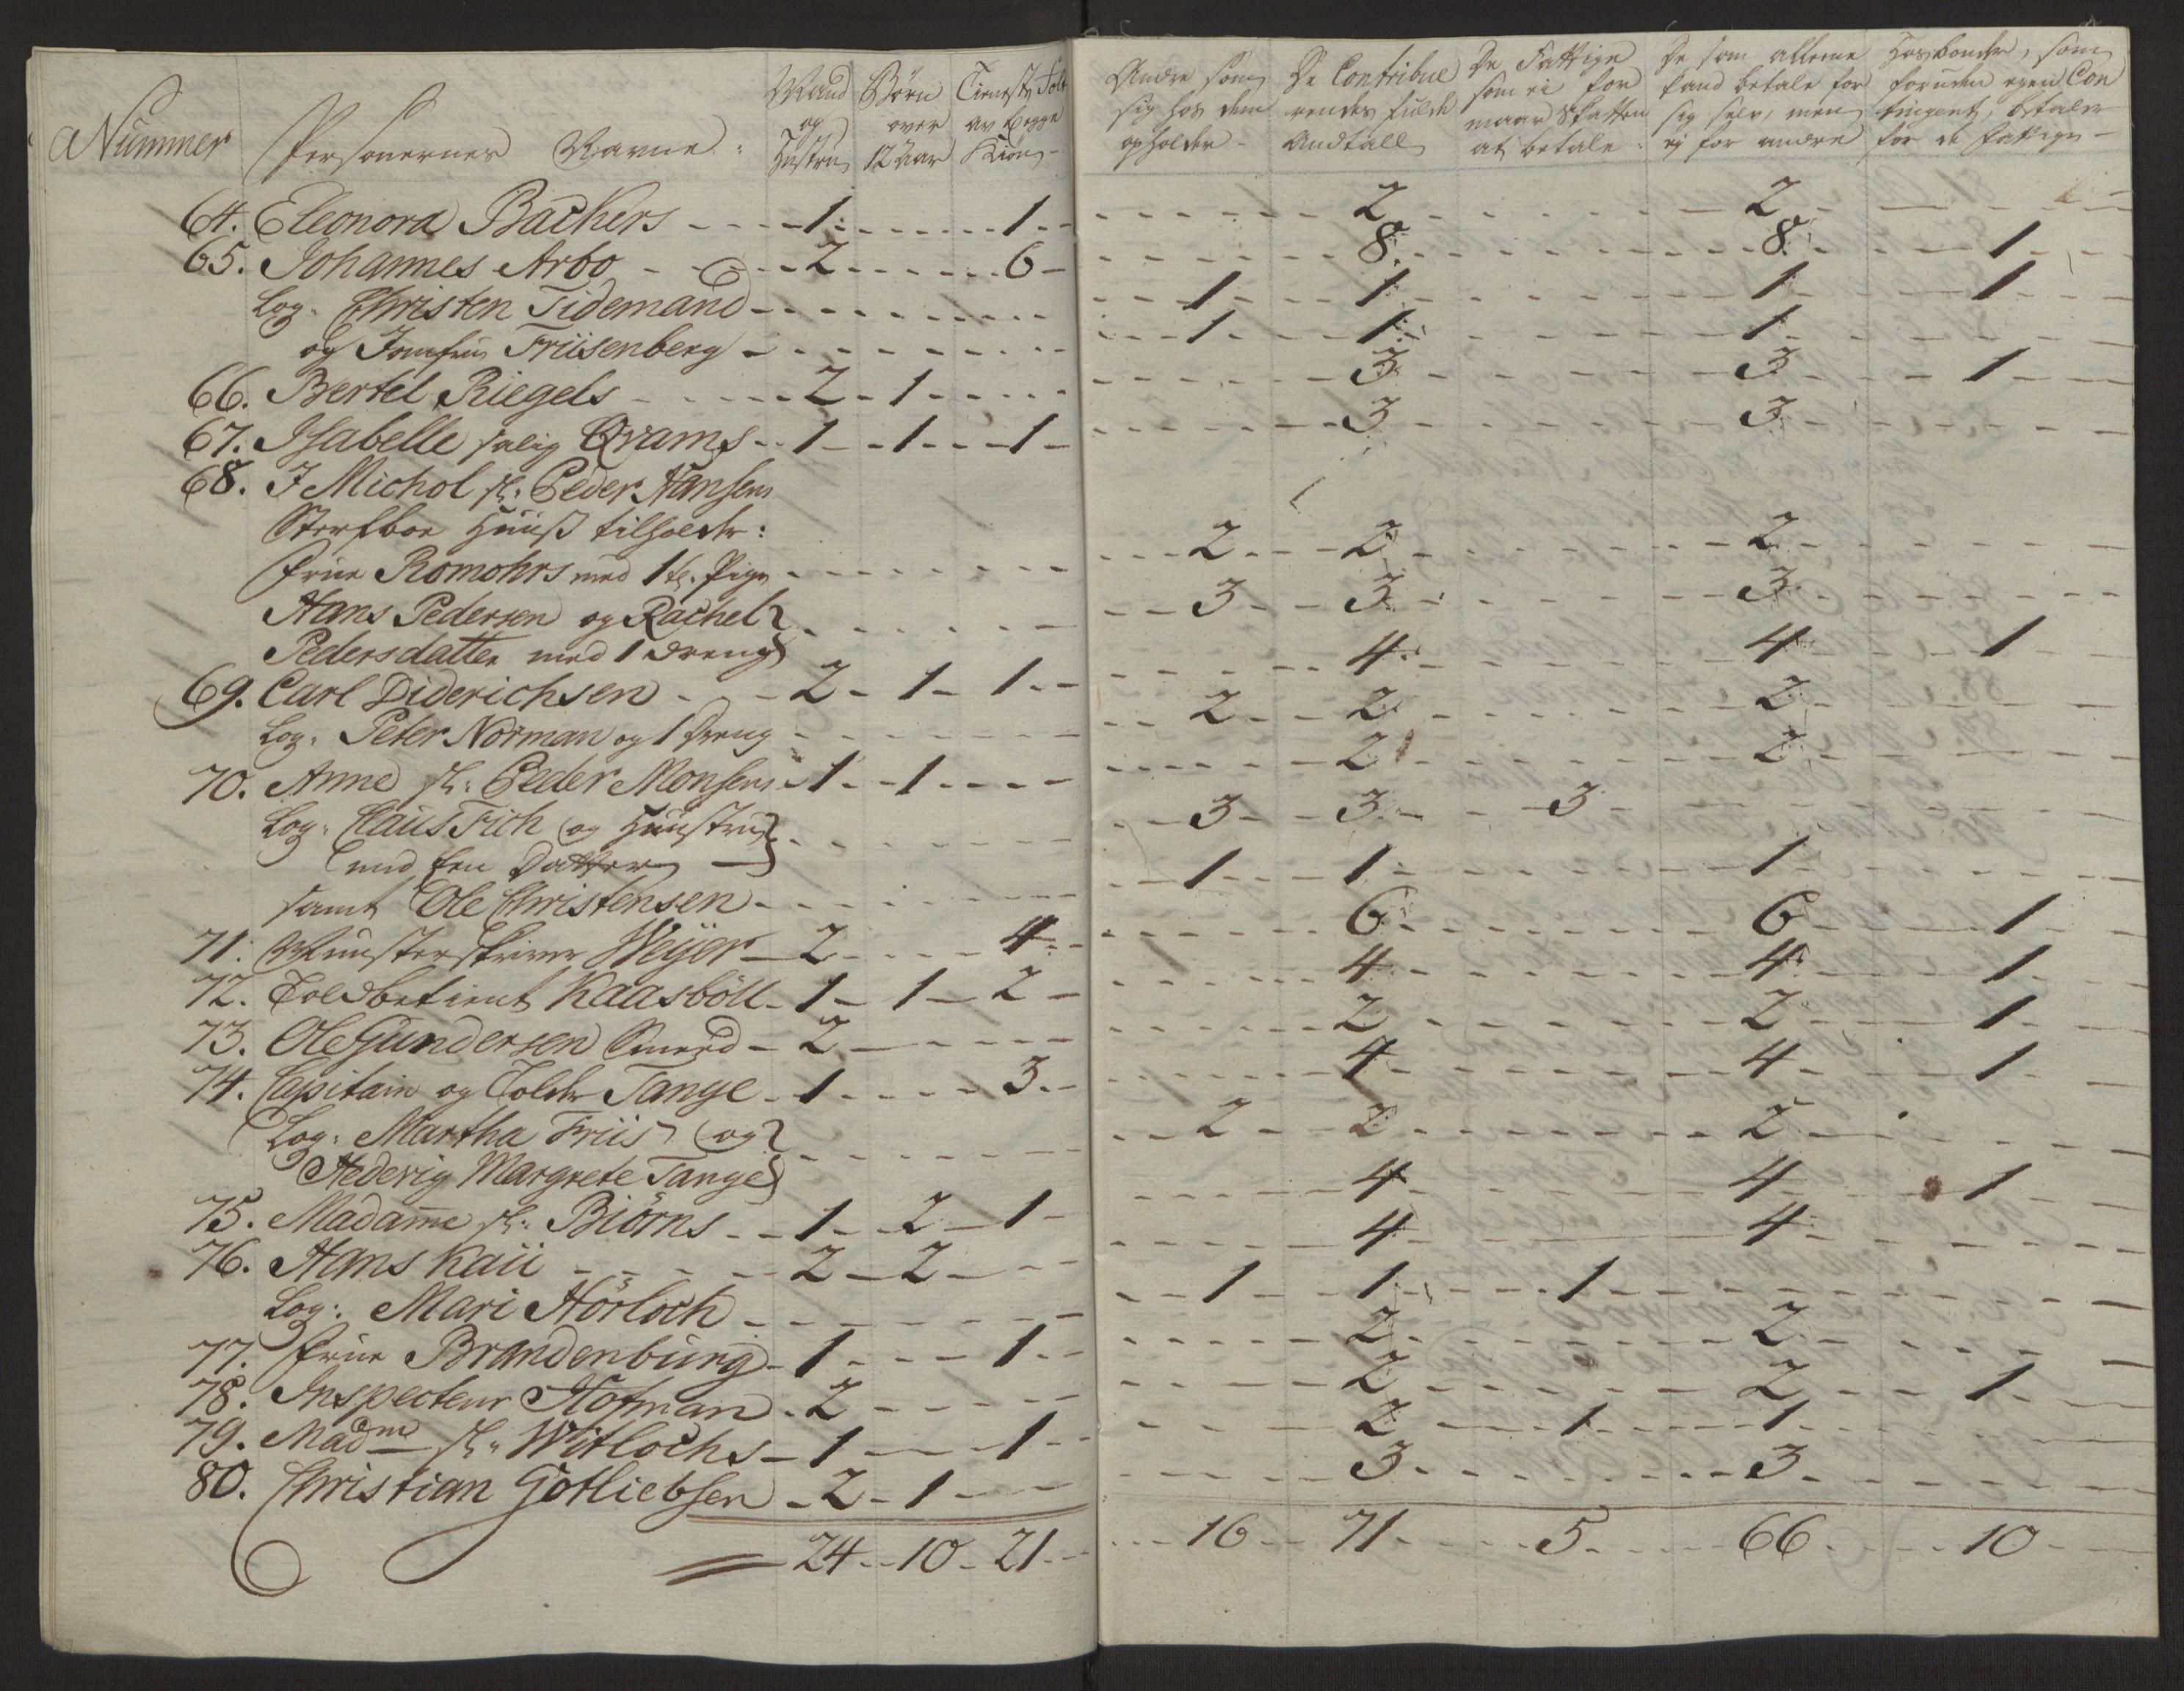 Nummer
Personernes Navne:
Mand og Hustru
Børn over 12 Aar
Tieneste Folk av begge Kiøn
Andre som sig hos dem opholder
De Contribuerendes fulde Andtall
De Fattige som ei for maar Skatten at betale:
De som alleene kand betale for sig selv, men ej for andre
Hosbonder, som foruden egen Contingent, betaler for de fattige
64. Eleonora Backers - 1 - 1 - 2 - 2
65. Johannes Arbo - 2 - 6 - 8 - 8 - 1
Log: Christen Tidemand - 1 - 1 - 1 - 1
og Jomfru Friisenberg - 1 - 1 - 1
66. Bertel Riegels - 2 - 1 - 3 - 3 - 1
67. Isabelle salig Qvams - 1 - 1 - 1 - 3 - 3
68. I Michol sl: Peder Hansens
Sterfboe Huuss tilholder:
Frue Romohrs med 1 st. Pige - 2 - 2 - 2
Hans Pedersen og Rachel
Pedersdatter med 1 dreng - 3 - 3 - 3
69. Carl Diderichsen - 2 - 1 - 1 - 4 - 4 - 1
Log: Peter Norman og 1 dreng - 2 - 2 - 2
70. Anne sl: Peder Monsens - 1 - 1 - 2 - 2
Log: Claus Fich og Huustrue
med een Datter - 3 - 3 - 3
samt Ole Christensen - 1 - 1 - 1
71. Munsterskriver Weyer - 2 - 4 - 6 - 6 - 1
72. Toldbetient Kaasböll - 1 - 1 - 2 - 4 - 4 - 1
73. Ole Gundersen Smed - 2 - 2 - 2 - 1
74. Capitain og Tolder Tange - 1 - 3 - 4 - 4 - 1
Log: Martha Friis og
Hedevig Margrete Tange - 2 - 2 - 2
75. Madame sl: Biörns - 1 - 2 - 1 - 4 - 4 - 1
76. Hans Kaii - 2 - 2 - 4 - 4
Log: Mari Hörloch - 1 - 1 - 1
77. Frue Brandenburg - 1 - 1 - 2 - 2
78. Inspecteur Hofman - 2 - 2 - 2 - 1
79. Madme sl: Witlochs - 1 - 1 - 2 - 1 - 1
80. Christian Gotliebsen - 2 - 1 - 3 - 3
24 - 10 - 21 - 16 - 71 - 5 - 66 - 10